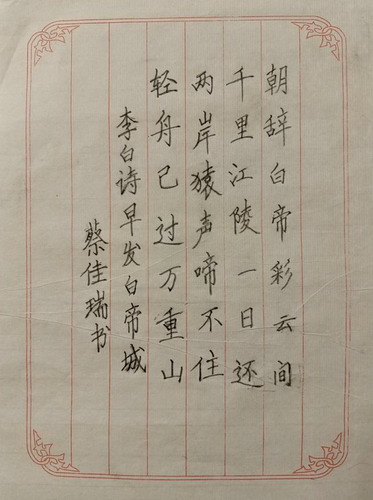 朝辞白帝彩云间
千里江陵一日还
两岸猿声啼不住
轻舟已过万重山
李白诗早发白帝城
蔡佳瑞书